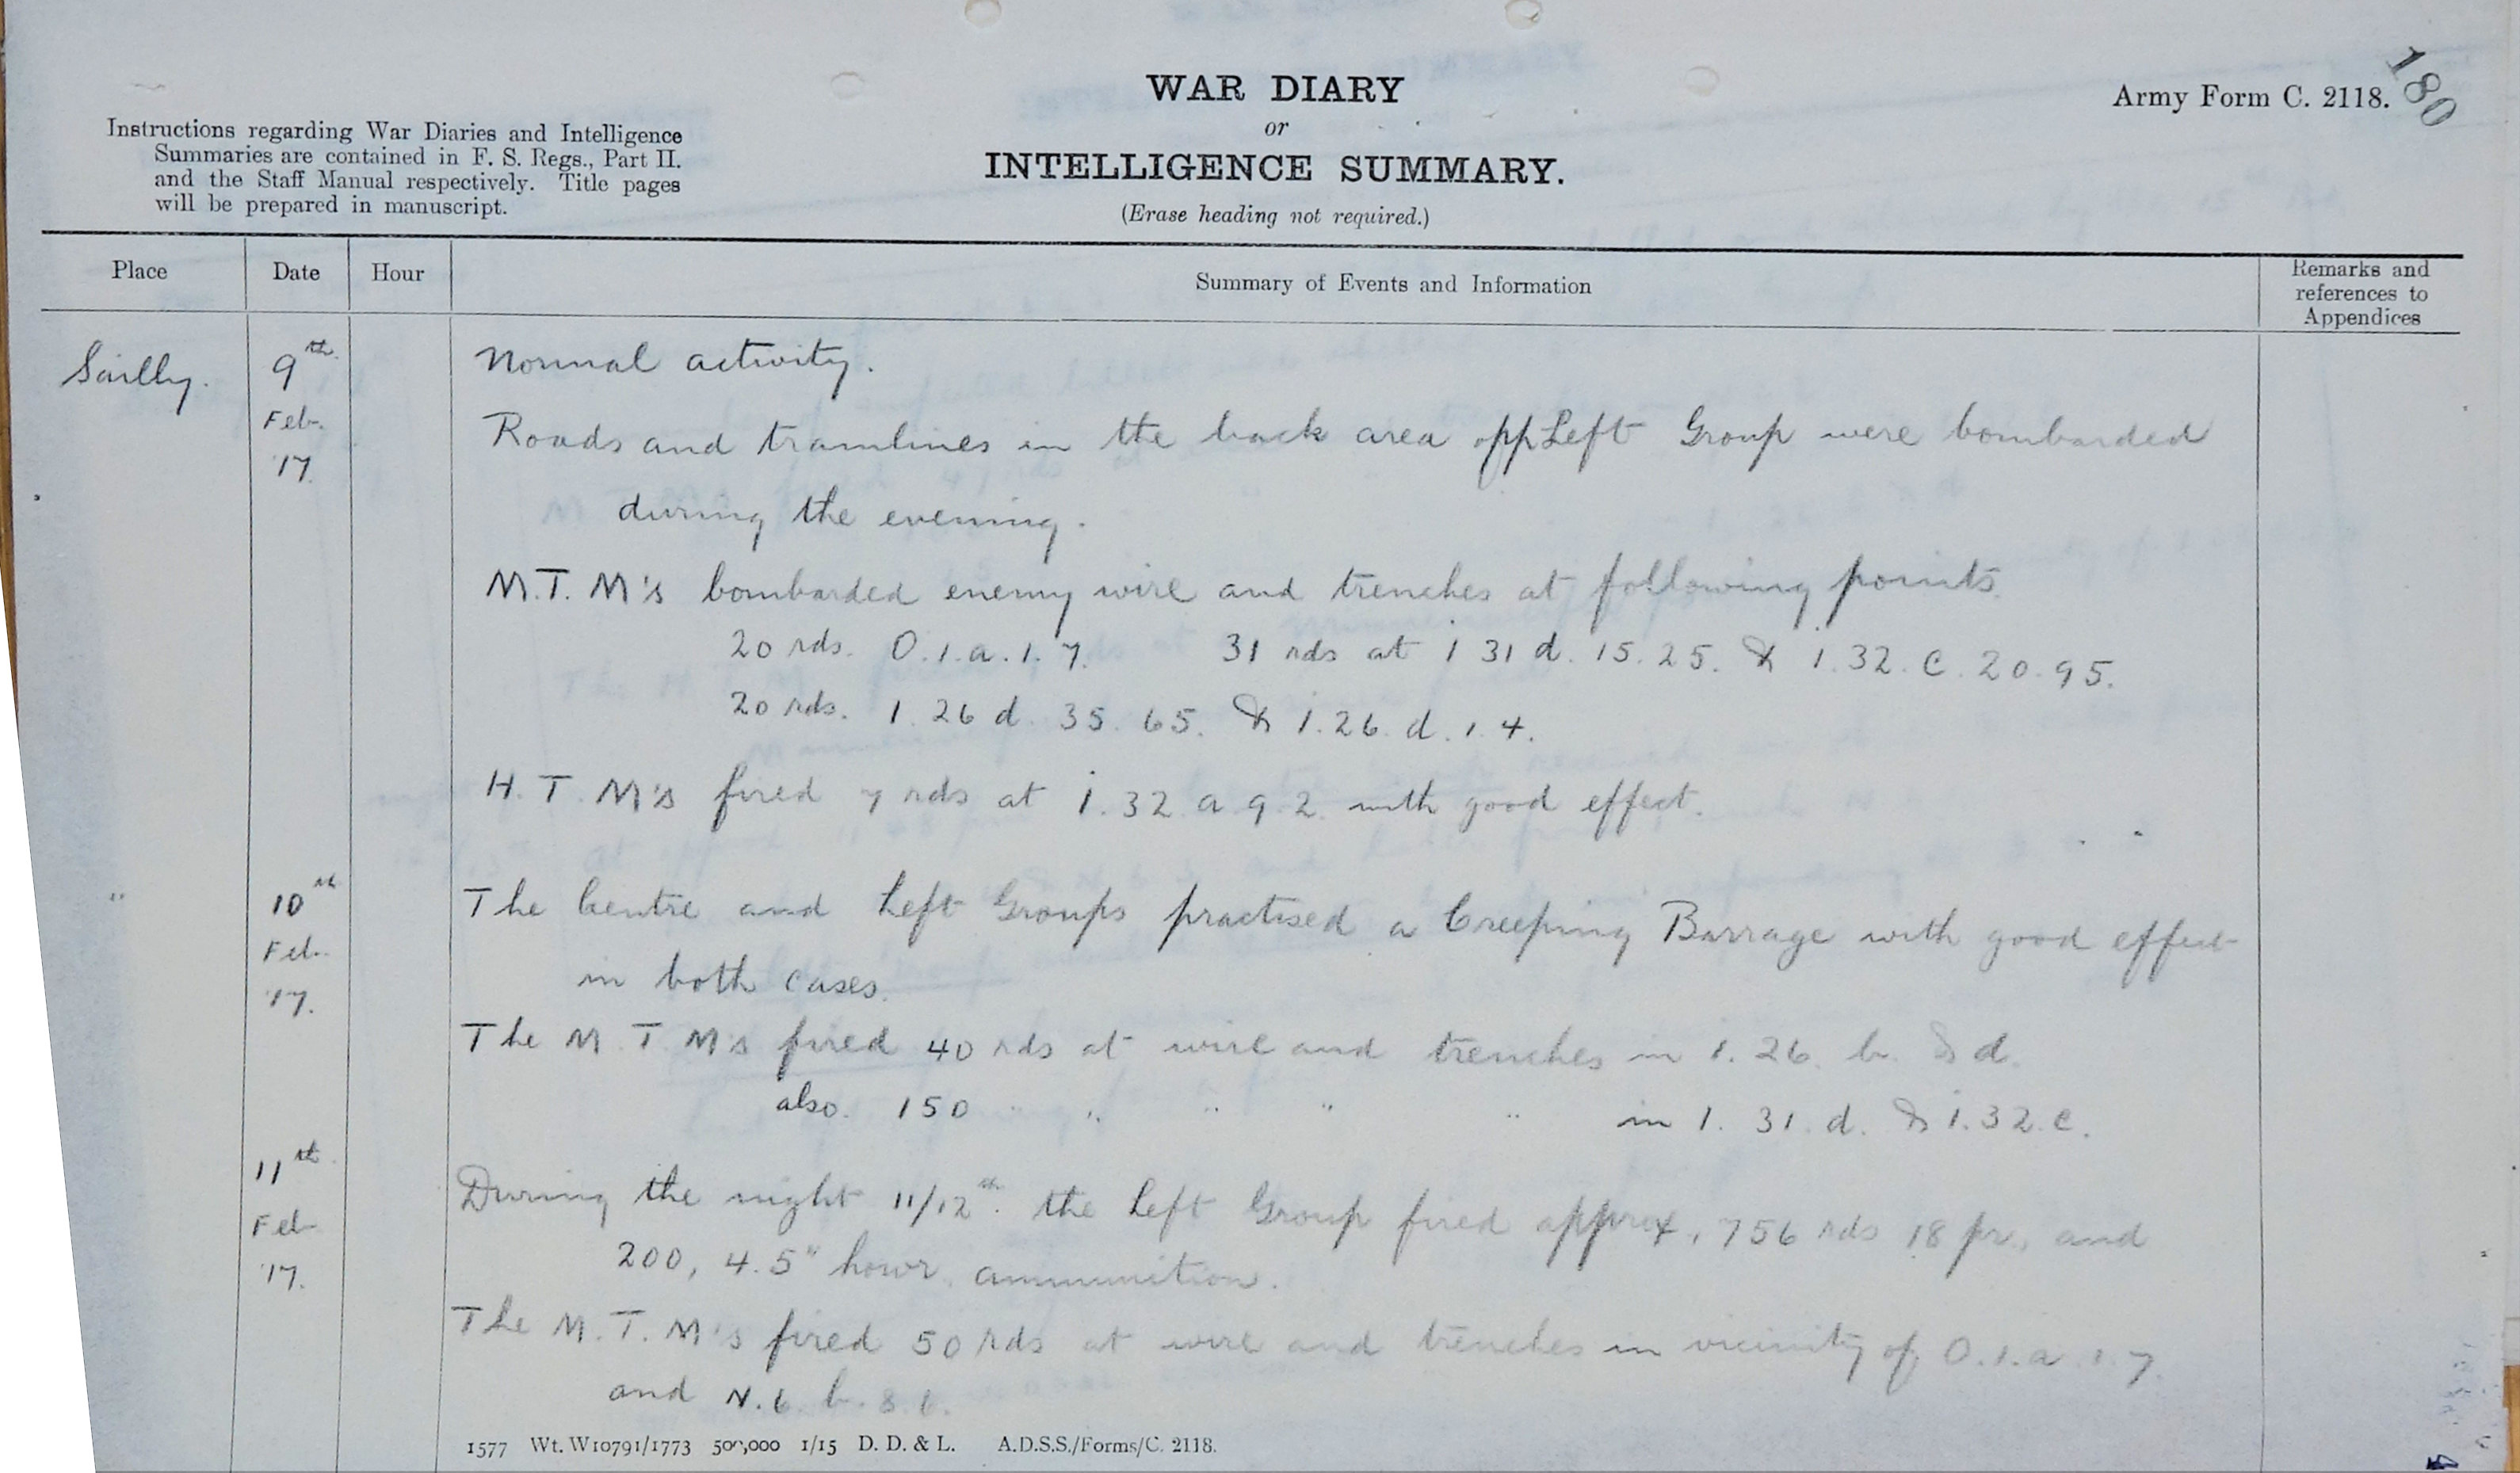 180
Army Form C. 2118.
WAR DIARY
or
INTELLIGENCE SUMMARY.
(Erase heading not required.)
Instructions regarding War Diaries and Intelligence
Summaries are contained in F. S. Regs., Part II.
and the Staff Manual respectively. Title pages
will be prepared in manuscript.
Place Date Hour Summary of Events and Information Remarks and
references to
Appendices
Sailly. 9th Normal activity.
Feb. Roads and tramlines in the back area opp Left Group were bombarded
'17.
during the evening.
M.T. M's bombarded enemy wire and trenches at following points.
20 rds. O.1.a.1.7. 31 rds at I 31 d. 15.25. & I.32.c.20.95.
20 rds. I.26 d 35.65. & I.26.d.1.4.
H.T.M's fired 7 rds at I.32.a 9.2. with good effect.
" 10th The Centre and Left Groups practised a Creeping Barrage with good effect
Feb.
in both cases.
'17.
The M.T.M's fired 40 rds at wire and trenches in I.26.b. & d.
also. 150 " " " " in I.31.d. & I.32.c.
11th During the night 11/12th. the Left Group fired approx, 756 rds 18 pr., and
Feb
200, 4.5" howr. ammunition.
'17.
The M.T.M's fired 50 rds at wire and trenches in vicinity of O.1.a.1.7.
and N.6.b.8.6.
1577 Wt. W10791/1773 500,000 1/15 D. D. & L. A.D.S.S./Forms/C. 2118.